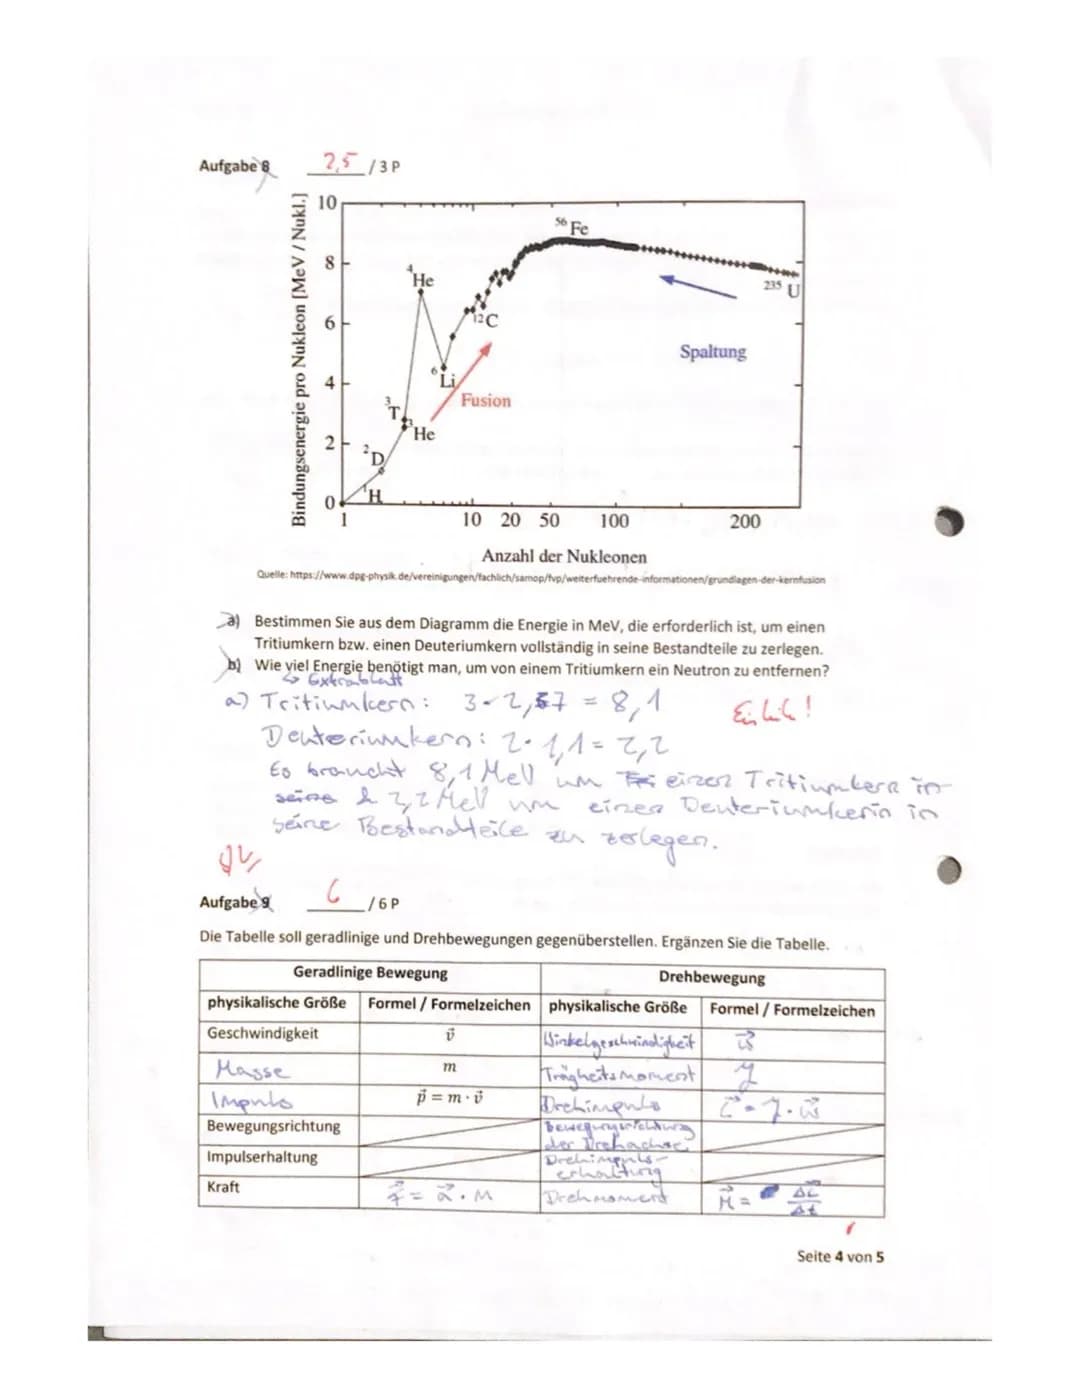 Aufgabe 8 2,5 /3 P
Bindungsenergie pro Nukleon [MeV / Nukl.]
10
8
6
4
2
0
56 Fe
4 He
235 U
12 C
Spaltung
6 Li
Fusion
3 T
3 He
2 D
1 H
1 10 20 50 100 200
Anzahl der Nukleonen
Quelle: https://www.dpg-physik.de/vereinigungen/fachlich/samop/fvp/weiterfuehrende-informationen/grundlagen-der-kernfusion
a) Bestimmen Sie aus dem Diagramm die Energie in MeV, die erforderlich ist, um einen
Tritiumkern bzw. einen Deuteriumkern vollständig in seine Bestandteile zu zerlegen.
b) Wie viel Energie benötigt man, um von einem Tritiumkern ein Neutron zu entfernen?
↳ Extrablatt
a) Tritiumkern: 3 · 2,7 = 8,1 Einh.!
Deuteriumkern: 2 · 1,1 = 2,2
Es braucht 8,1 MeV um einen Tritiumkern in
seine & 2,2 MeV um einen Deuteriumkern in
seine Bestandteile zu zerlegen.
Aufgabe 9 6 /6 P
Die Tabelle soll geradlinige und Drehbewegungen gegenüberstellen. Ergänzen Sie die Tabelle.
Geradlinige Bewegung Drehbewegung
physikalische Größe Formel / Formelzeichen physikalische Größe Formel / Formelzeichen
Geschwindigkeit v⃗ Winkelgeschwindigkeit ω⃗
Masse m Trägheitsmoment J
Impuls p⃗ = m · v⃗ Drehimpuls L⃗ = J · ω⃗
Bewegungsrichtung Bewegungsrichtung
der Drehachse
Impulserhaltung Drehimpuls-
erhaltung
Kraft F⃗ = a⃗ · m Drehmoment M⃗ = ΔL⃗
Δt
Seite 4 von 5